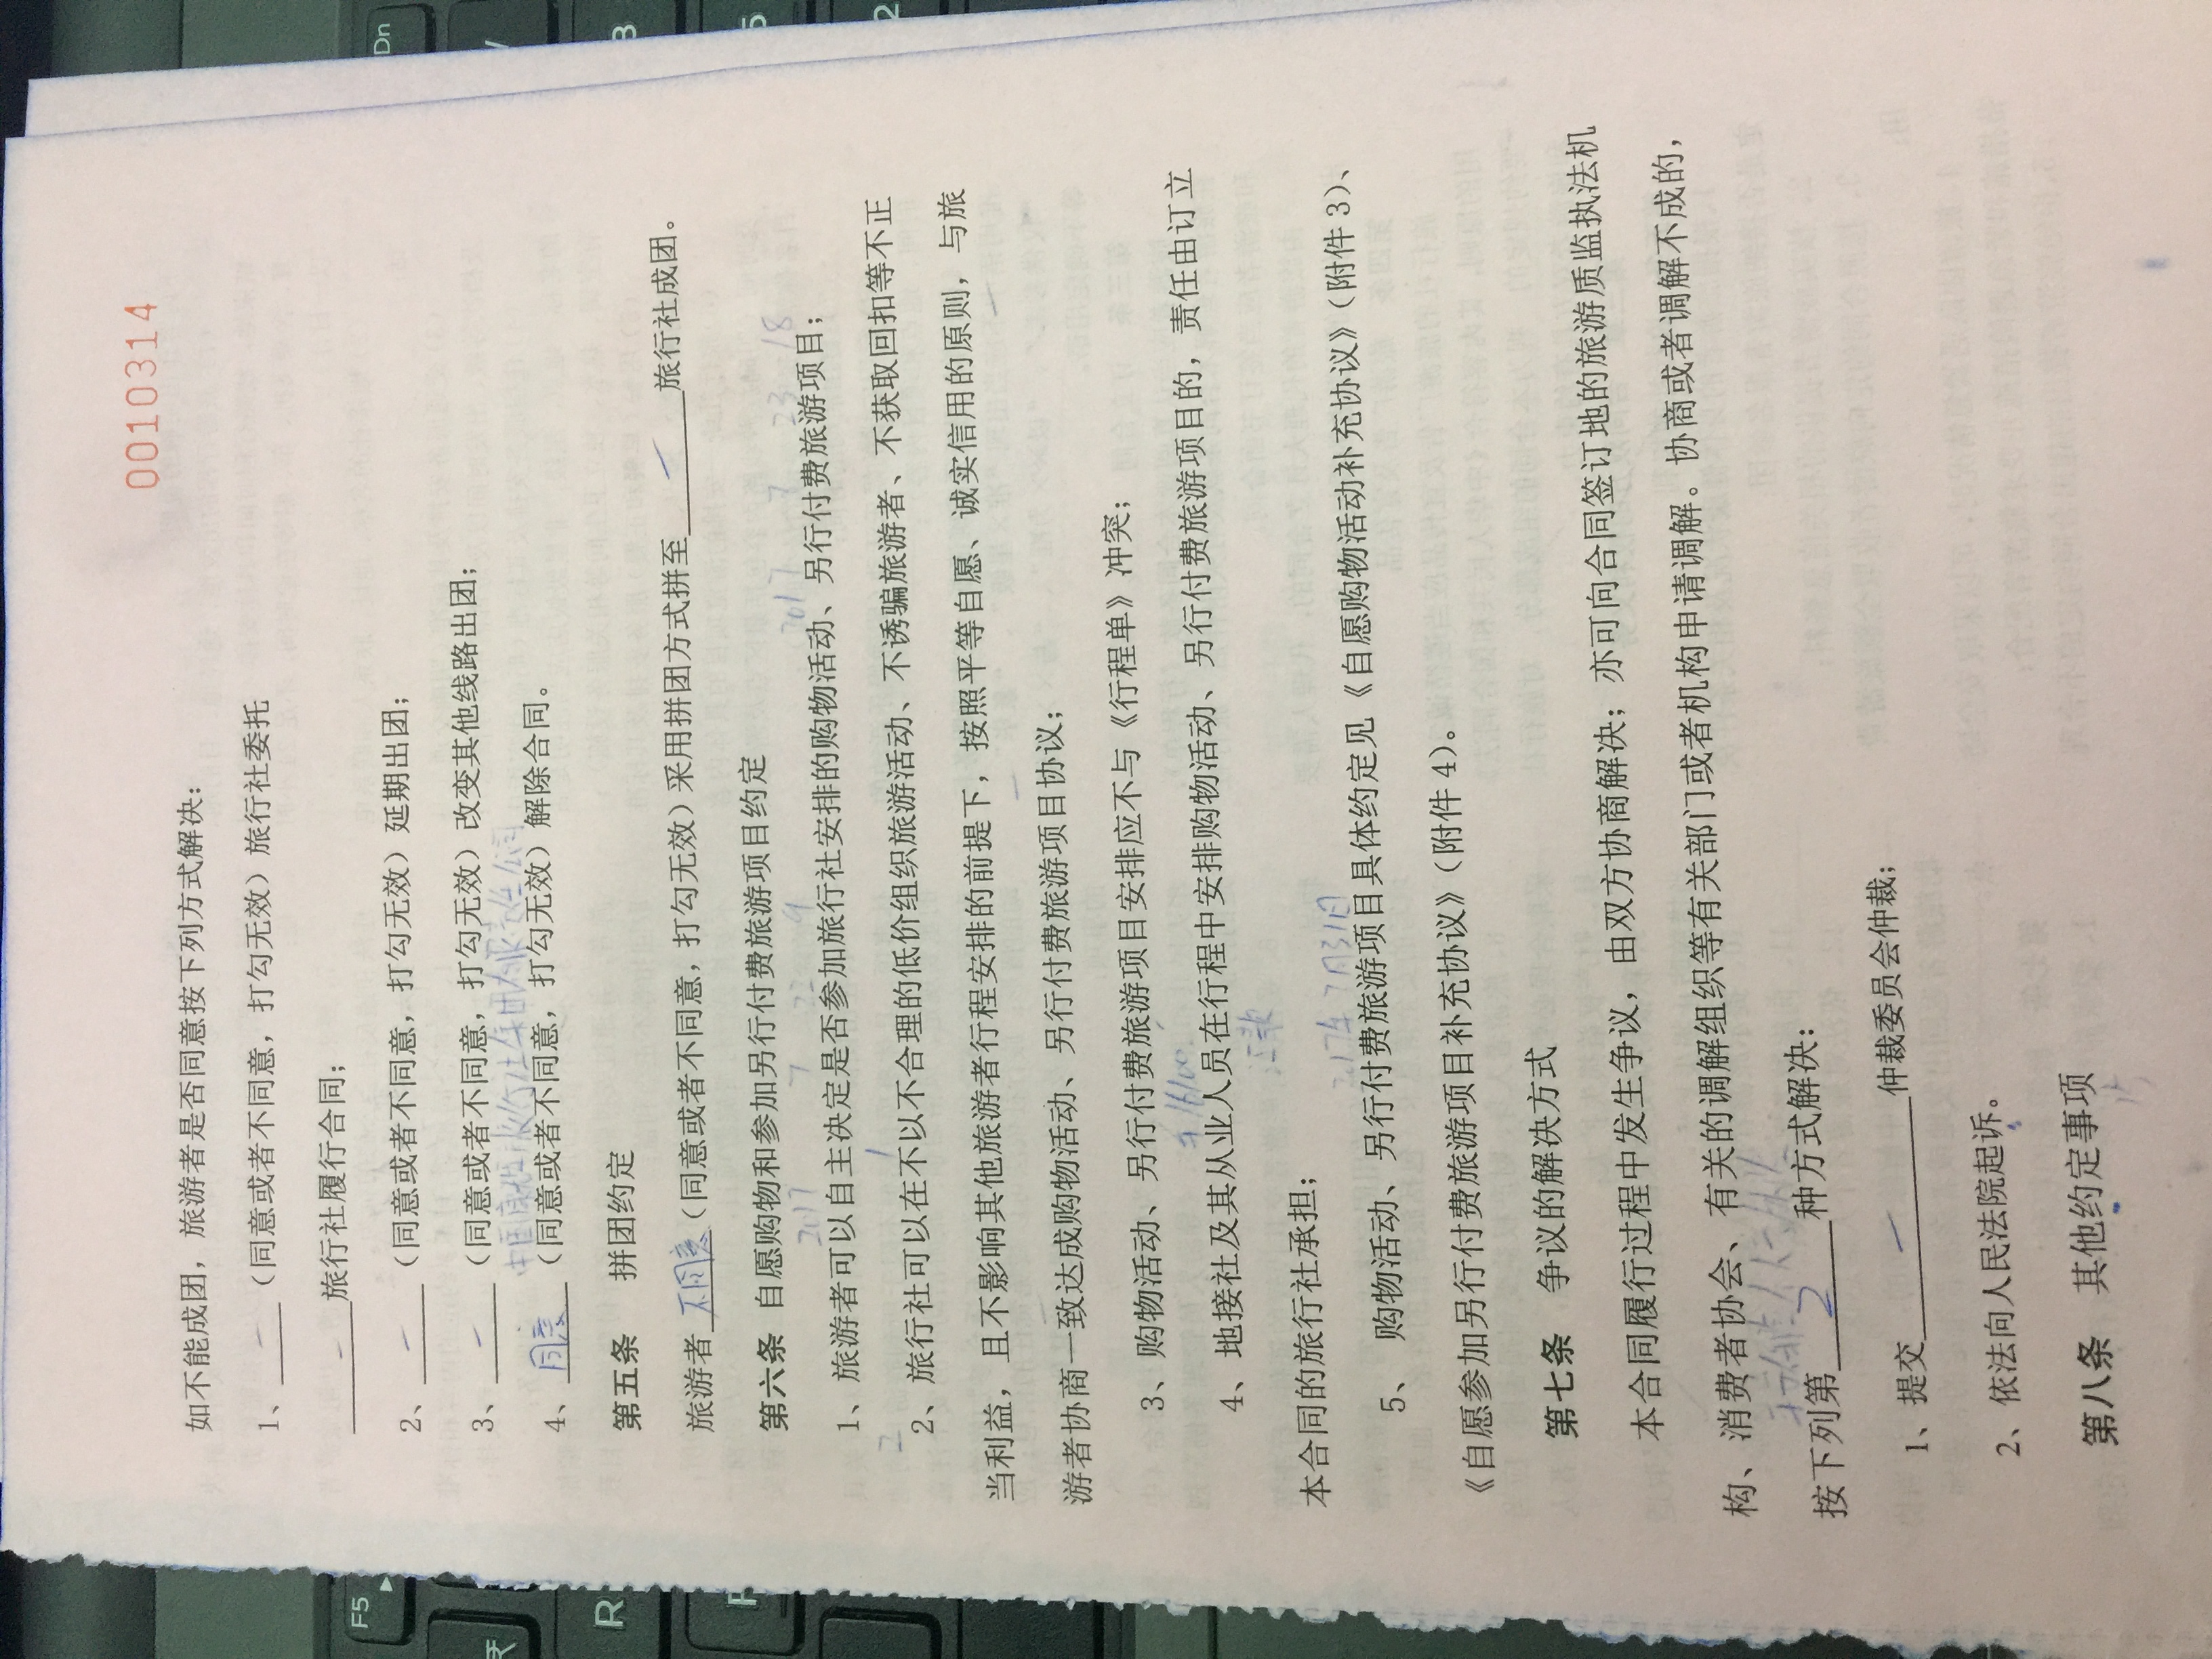 0010314
如不能成团，旅游者是否同意按下列方式解决：
1、（同意或者不同意，打勾无效）旅行社委托
旅行社履行合同；
2、（同意或者不同意，打勾无效）延期出团；
3、（同意或者不同意，打勾无效）改变其他线路出团；
4、同意（同意或者不同意，打勾无效）解除合同。
第五条 拼团约定
旅游者不同意（同意或者不同意，打勾无效）采用拼团方式拼至旅行社成团。
第六条 自愿购物和参加另行付费旅游项目约定
1、旅游者可以自主决定是否参加旅行社安排的购物活动、另行付费旅游项目；
2、旅行社可以在不以不合理的低价组织旅游活动、不诱骗旅游者、不获取回扣等不正
当利益，且不影响其他旅游者行程安排的前提下，按照平等自愿、诚实信用的原则，与旅
游者协商一致达成购物活动、另行付费旅游项目协议；
3、购物活动、另行付费旅游项目安排应不与《行程单》冲突；
4、地接社及其从业人员在行程中安排购物活动、另行付费旅游项目的，责任由订立
本合同的旅行社承担；
5、购物活动、另行付费旅游项目具体约定见《自愿购物活动补充协议》（附件 3）、
《自愿参加另行付费旅游项目补充协议》（附件 4）。
第七条 争议的解决方式
本合同履行过程中发生争议，由双方协商解决；亦可向合同签订地的旅游质监执法机
构、消费者协会、有关的调解组织等有关部门或者机构申请调解。协商或者调解不成的，
按下列第2种方式解决：
1、提交仲裁委员会仲裁；
2、依法向人民法院起诉。
第八条 其他约定事项
F5
R
Dn